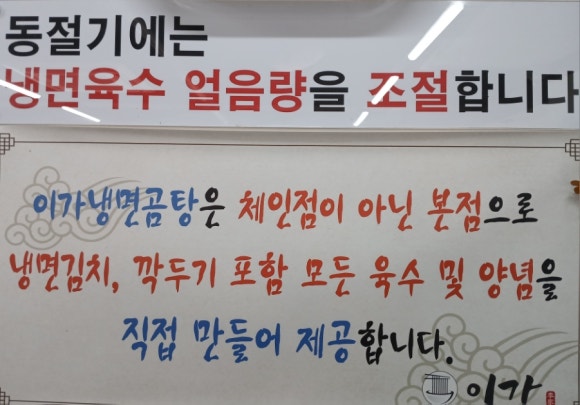 동절기에는
냉면육수 얼음량을 조절합니다
이가냉면곰탕은 체인점이 아닌 본점으로
냉면김치, 깍두기 포함 모든 육수 및 양념을
직접 만들어 제공합니다.
이가